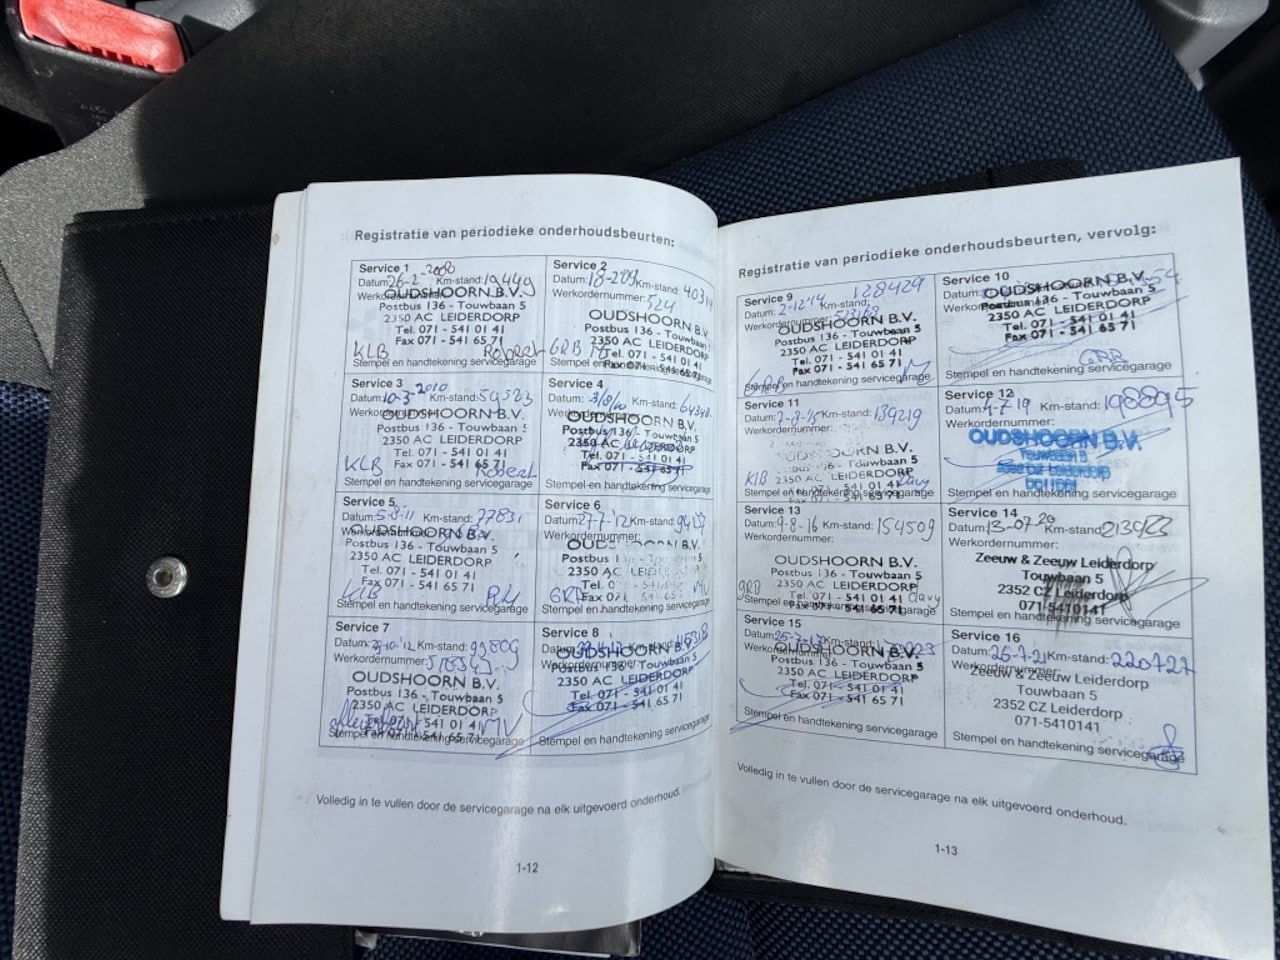 Registratie van periodieke onderhoudsbeurten:
Service 1
Datum: 26-2-2008 Km-stand: 19449
Werkordernummer:
OUDSHOORN B.V.
Postbus 136 - Touwbaan 5
2350 AC LEIDERDORP
Tel. 071 - 541 01 41
Fax 071 - 541 65 71
KLB Robert
Stempel en handtekening servicegarage
Service 2
Datum: 18-209 Km-stand:
Werkordernummer: 524
OUDSHOORN B.V.
Postbus 136 - Touwbaan
2350 AC LEIDERDORP
Tel. 071 - 541 01 41
Fax 071 - 541 65 71
GRB
Stempel en handtekening servicegarage
Service 3
Datum: 10-3-2010 Km-stand: 59523
Werkordernummer:
OUDSHOORN B.V.
Postbus 136 - Touwbaan 5
2350 AC LEIDERDORP
Tel. 071 - 541 01 41
Fax 071 - 541 65 71
KLB Robert
Stempel en handtekening servicegarage
Service 4
Datum: Km-stand:
OUDSHOORN B.V.
Postbus 136 - Touwbaan 5
2350 AC LEIDERDORP
Tel. 071 - 541 01 41
Fax 071 - 541 65 71
Stempel en handtekening servicegarage
Service 5
Datum: 5-8-11 Km-stand: 77831
Werkordernummer:
OUDSHOORN B.V.
Postbus 136 - Touwbaan 5
2350 AC LEIDERDORP
Tel. 071 - 541 01 41
Fax 071 - 541 65 71
KLB
Stempel en handtekening servicegarage
Service 6
Datum: 27-7-'12 Km-stand:
Werkordernummer:
OUDS B.V.
Postbus
2350 AC
Fax 071 - 541 65 71
Stempel en handtekening servicegarage
Service 7
Datum: Km-stand: 99809
Werkordernummer:
OUDSHOORN B.V.
Postbus 136 - Touwbaan 5
2350 AC LEIDERDORP
Tel. 071 - 541 01 41
Fax 071 - 541 65 71
Stempel en handtekening servicegarage
Service 8
Datum: Km-stand:
Werkordernummer:
OUDSHOORN B.V.
Postbus 136 - Touwbaan 5
2350 AC LEIDERDORP
Tel. 071 - 541 01 41
Fax 071 - 541 65 71
Stempel en handtekening servicegarage
Volledig in te vullen door de servicegarage na elk uitgevoerd onderhoud.
1-12
Registratie van periodieke onderhoudsbeurten, vervolg:
Service 9
Datum: 2-12-'14 Km-stand: 128429
Werkordernummer:
OUDSHOORN B.V.
Postbus 136 - Touwbaan 5
2350 AC LEIDERDORP
Tel. 071 - 541 01 41
Fax 071 - 541 65 71
Stempel en handtekening servicegarage
Service 10
Datum:
OUDSHOORN B.V.
Postbus 136 - Touwbaan 5
2350 AC LEIDERDORP
Tel. 071 - 541 01 41
Fax 071 - 541 65 71
GRB
Stempel en handtekening servicegarage
Service 11
Datum: 7-8-15 Km-stand: 139219
Werkordernummer:
OUDSHOORN B.V.
136 - Touwbaan 5
2350 AC LEIDERDORP
Tel. 071 - 541 01 41
Fax 071 - 541 65 71
KLB Davy
Stempel en handtekening servicegarage
Service 12
Datum: 4-7-19 Km-stand: 198895
Werkordernummer:
OUDSHOORN B.V.
Touwbaan 5
2352 CZ Leiderdorp
Stempel en handtekening servicegarage
Service 13
Datum: 9-8-16 Km-stand: 154509
Werkordernummer:
OUDSHOORN B.V.
Postbus 136 - Touwbaan 5
2350 AC LEIDERDORP
Tel. 071 - 541 01 41
Fax 071 - 541 65 71
GRB Davy
Stempel en handtekening servicegarage
Service 14
Datum: 13-07-20 Km-stand:
Werkordernummer:
Zeeuw & Zeeuw Leiderdorp
Touwbaan 5
2352 CZ Leiderdorp
071-5410141
Stempel en handtekening servicegarage
Service 15
Datum: Km-stand:
Werkordernummer:
OUDSHOORN B.V.
Postbus 136 - Touwbaan 5
2350 AC LEIDERDORP
Tel. 071 - 541 01 41
Fax 071 - 541 65 71
Stempel en handtekening servicegarage
Service 16
Datum: 26-7-21 Km-stand: 220727
Werkordernummer:
Zeeuw & Zeeuw Leiderdorp
Touwbaan 5
2352 CZ Leiderdorp
071-5410141
Stempel en handtekening servicegarage
Volledig in te vullen door de servicegarage na elk uitgevoerd onderhoud.
1-13